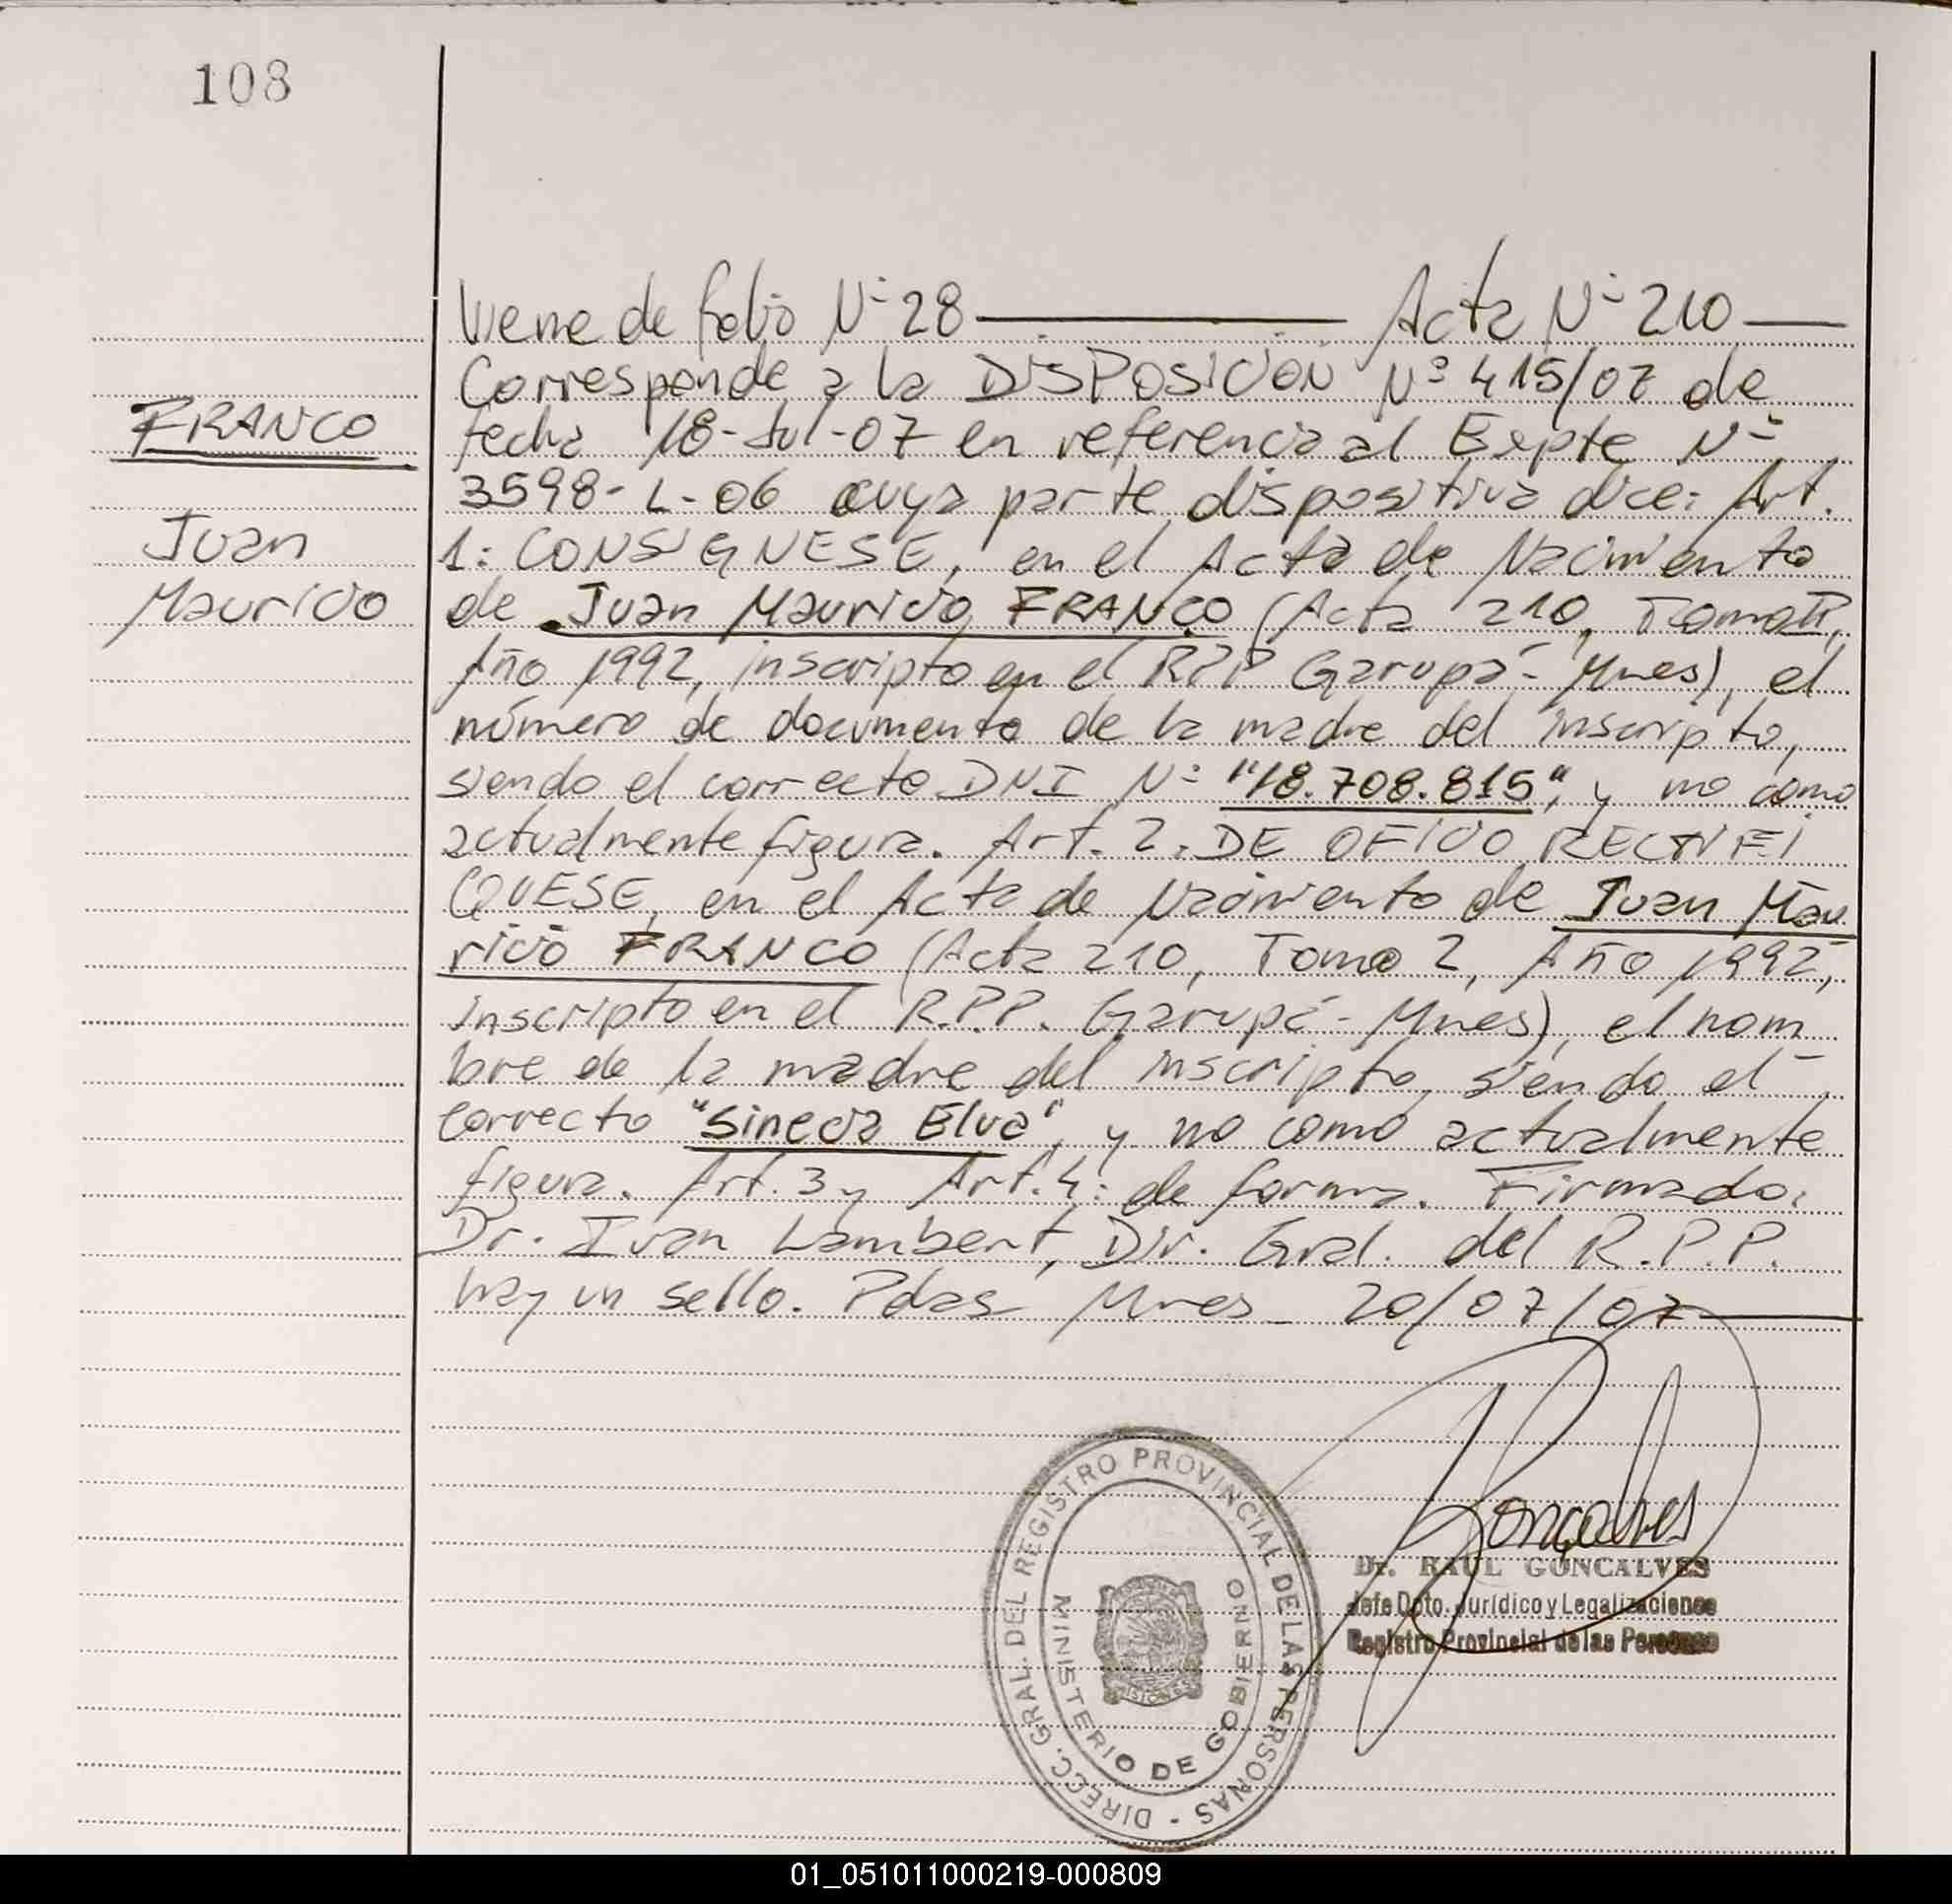 108
Viene de folio Nº 28 ——— Acta Nº 210 —
Corresponde a la DISPOSICION Nº 415/07 de
FRANCO
fecha 18-Jul-07 en referencia al Expte Nº
3598-L-06 cuya parte dispositiva dice: Art.
Juan
1: CONSIGNESE, en el Acta de Nacimiento
Mauricio
de Juan Mauricio FRANCO (Acta 210, Tomo II,
Año 1992, inscripto en el RPP Garupá-Mnes), el
número de documento de la madre del inscripto,
siendo el correcto DNI Nº "18.708.815", y no como
actualmente figura. Art. 2: DE OFICIO RECTIFI
QUESE, en el Acta de Nacimiento de Juan Mau
ricio FRANCO (Acta 210, Tomo 2, Año 1992,
inscripto en el R.P.P. Garupá-Mnes), el nom
bre de la madre del inscripto, siendo el
correcto "Sinecia Elva", y no como actualmente
figura. Art. 3 y Art. 4: de forma. Firmado:
Dr. Ivan Lambert, Dir. Gral. del R.P.P.
hay un sello. Pdas Mnes 20/07/07
DIRECC. GRAL. DEL REGISTRO PROVINCIAL DE LAS PERSONAS -
MINISTERIO DE GOBIERNO
MISIONES
Goncalves
Dr. RAUL GONCALVES
Jefe Dpto. Jurídico y Legalizaciones
Registro Provincial de las Personas
01_051011000219-000809